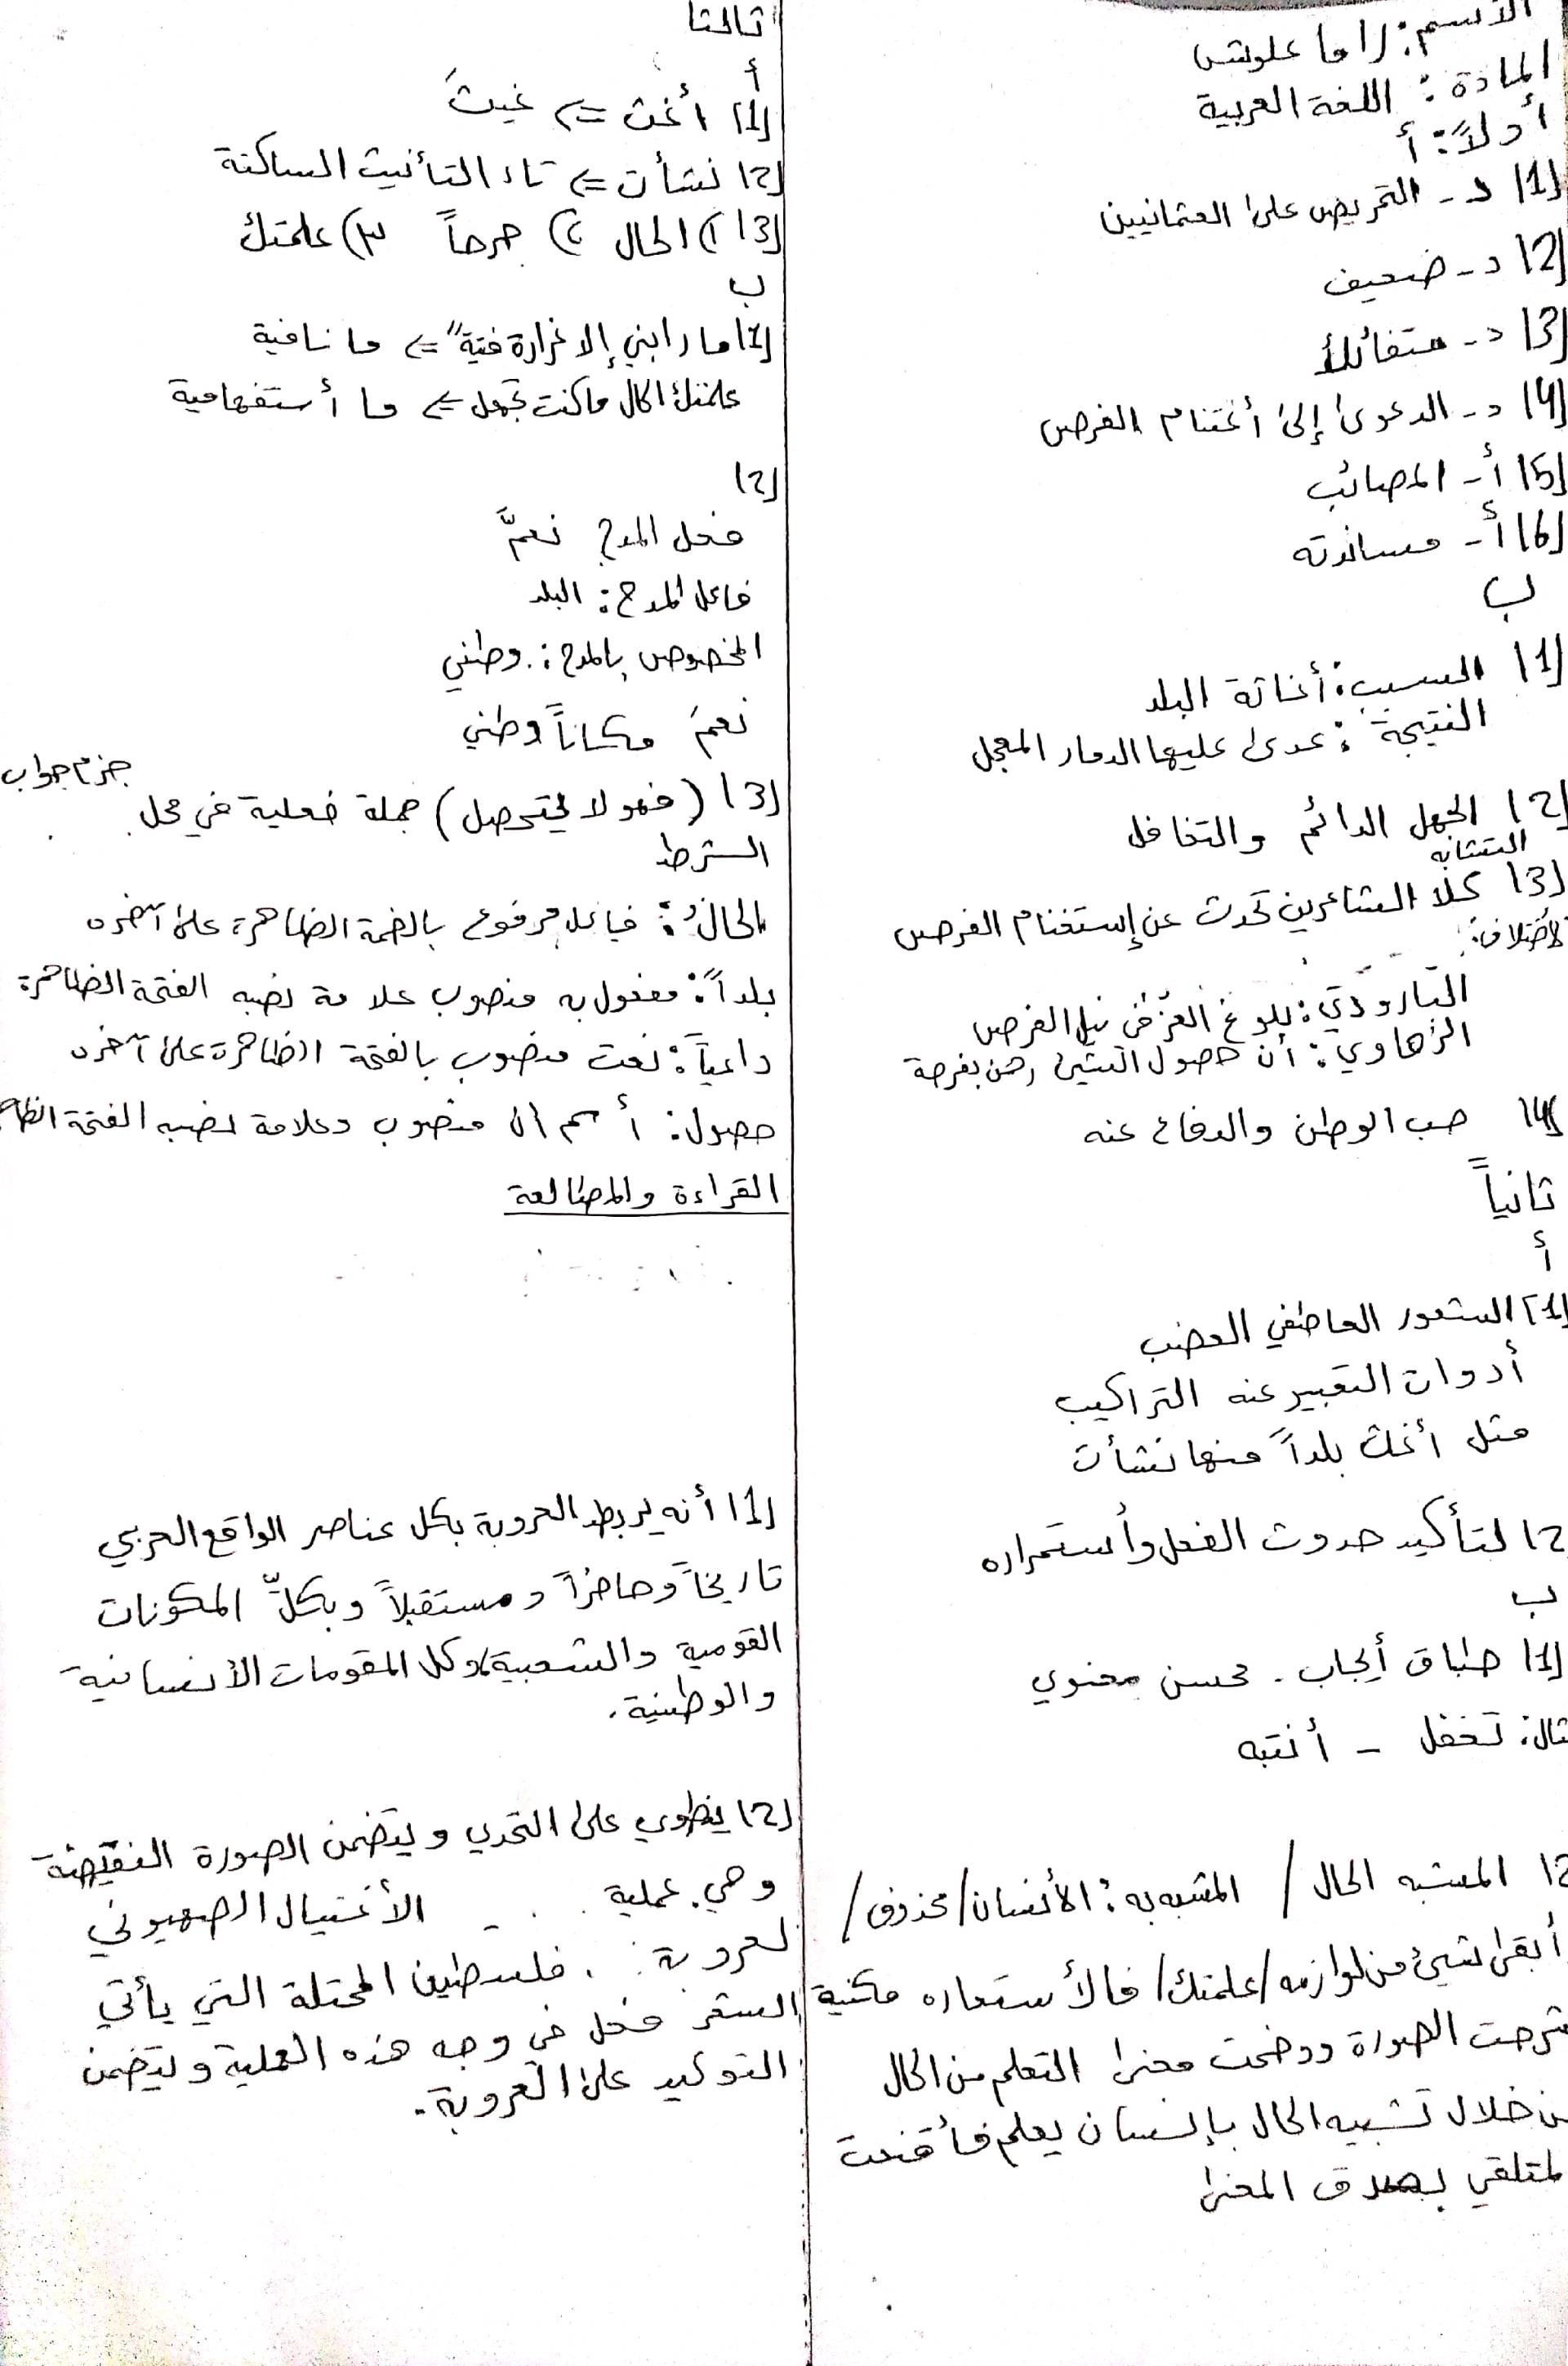 الأسم: راما علوش
المادة: اللغة العربية
أولاً: أ
1) د - التحريض على العثمانيين
2) د - ضعيف
3) د - متفائلاً
4) د - الدعوى إلى أغتنام الفرص
5) أ - المصائب
6) أ - مساندته
ب
1) السبب: أغاثة البلد
النتيجة: عدى عليها الدمار المعجل
2) الجهل الدائم والتغافل
التشابه
3) كلا الشاعرين تحدث عن إستغنام الفرص
الأختلاف:
البارودي: بلوغ العز في نيل الفرص
الزهاوي: أن حصول الشيئ رهن بفرصة
4) حب الوطن والدفاع عنه
ثانياً
أ
1) الشعور العاطفي الغضب
أدوات التعبير عنه التراكيب
مثل أغث بلداً منها نشأت
2) لتأكيد حدوث الفعل وأستمراره
ب
1) طباق أيجاب. محسن معنوي
مثال: تغفل - أنتبه
2) المشبه الحال / المشبه به: الأنسان / محذوف /
أبقى لشيئ من لوازمه / علمتك / فالأستعاره مكنية
شرحت الصورة ووضحت معنى التعلم من الحال
من خلال تشبيه الحال بإنسان يعلم فأقنعت
المتلقي بصدق المعنى
ثالثا
أ
1) أغث => غيثَ
2) نشأت => تاء التأنيث الساكنة
3) ١) الحال ٢) جرحاً ٣) علمتك
ب
1) ما رابني إلا غرارة فتية" => ما نافية
علمتك الحال ما كنت تجهل => ما أستفهامية
2)
فعل المدح نعمَّ
فاعل المدح: البلد
المخصوص بالمدح: وطني
نعمَ مكاناً وطني
3) (فهو لا يتحصل) جملة فعلية في محل جزم جواب
الشرط
الحالُ: فاعل مرفوع بالضمة الظاهرة على آخره
بلداً: مفعول به منصوب علامة نصبه الفتحة الظاهرة
داعياً: نعت منصوب بالفتحة الظاهرة على آخره
حصول: أسم ان منصوب وعلامة نصبه الفتحة الظا
القراءة والمطالعة
1) أنه يربط العروبة بكل عناصر الواقع العربي
تاريخاً وحاضراً ومستقبلاً وبكلّ المكونات
القومية والشعبية وكل المقومات الأنسانية
والوطنية.
2) ينطوي على التحدي ويتضمن الصورة النقيضة
وهي عملية الأغتيال الصهيوني
لعروبة فلسطين المحتلة التي يأتي
الشعر فعل في وجه هذه العملية ويتضمن
التوكيد على العروبة.